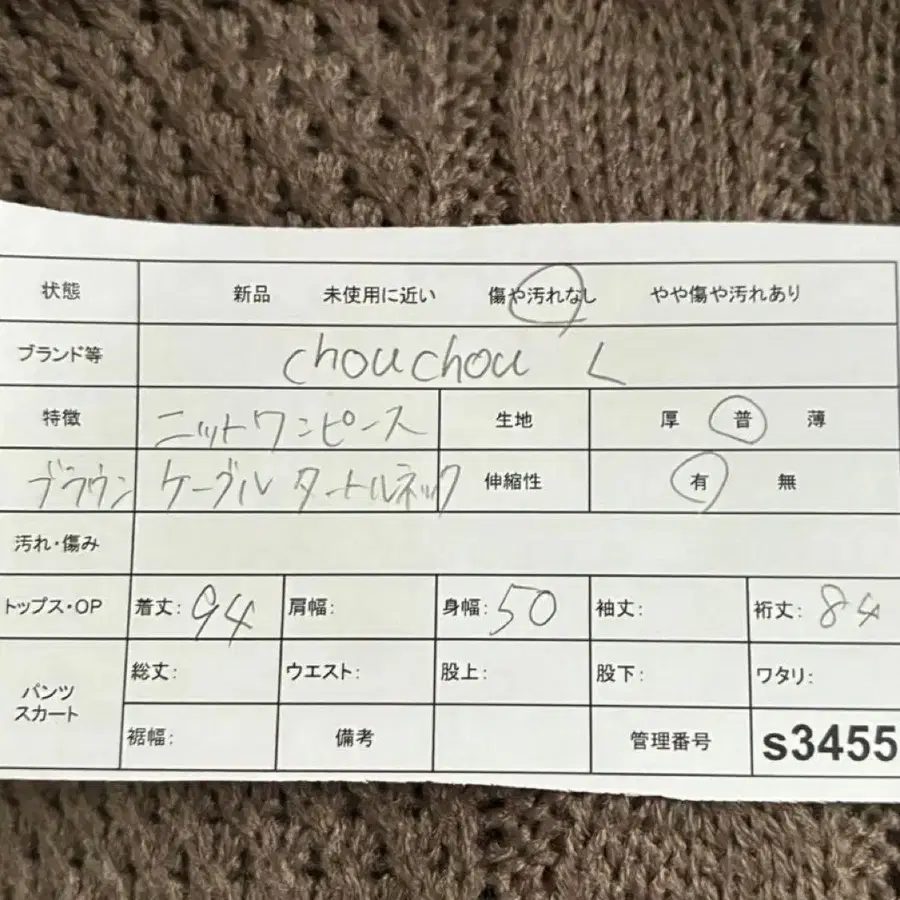 状態 新品 未使用に近い 傷や汚れなし やや傷や汚れあり
ブランド等 chouchou L
特徴 ニットワンピース 生地 厚 普 薄
ブラウン ケーブル タートルネック 伸縮性 有 無
汚れ・傷み
トップス・OP 着丈: 94 肩幅: 身幅: 50 袖丈: 裄丈: 84
パンツ
スカート
総丈: ウエスト: 股上: 股下: ワタリ:
裾幅: 備考 管理番号 s3455